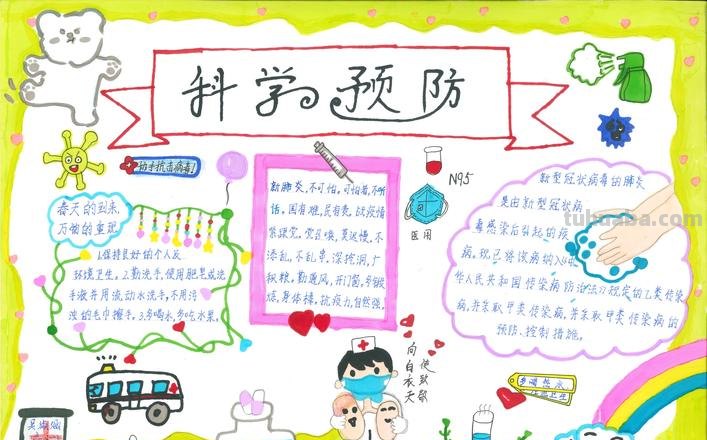 科学预防
协手抗击病毒!
N95
医用
春天的到来,
万物的重现
1.保持良好的个人及
环境卫生。2.勤洗手,使用肥皂或洗
手液并用流动水洗手,不用污
浊的毛巾擦手。3.多喝水,多吃水果。
新肺炎,不可怕。可怕者,不听
话。国有难,民有责,战疫情
紧课堂。党召唤,莫迟慢。不
添乱,不乱费。深挖洞,广
积粮。勤通风,开门窗。多锻
炼,身体棒,抗疫力,自然强。
新型冠状病毒的肺炎
是由新型冠状病
毒感染后引起的疾
病。现已将该病纳入中
华人民共和国传染病防治法》规定的乙类传染
病,并采取甲类传染病,并采取甲类传染病的
预防、控制措施。
tuhuaba.com
向白衣天
使致敬
多喝热水